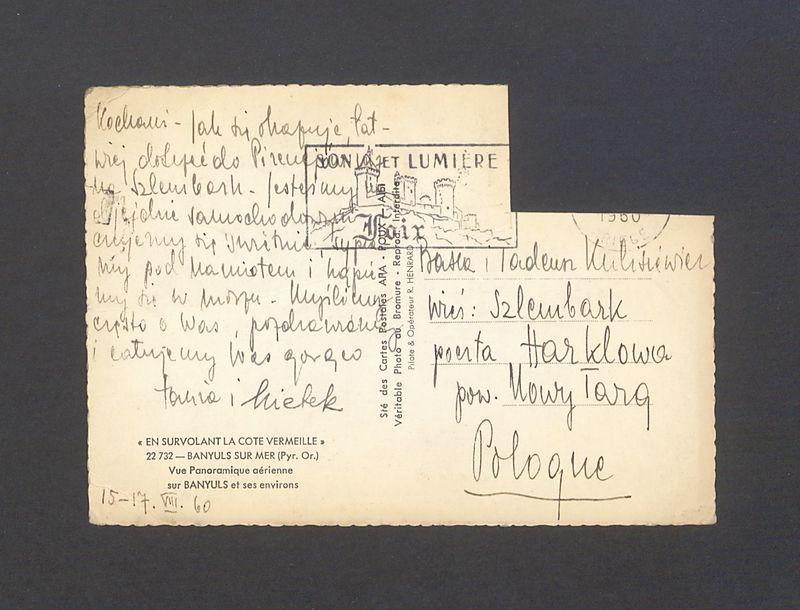 Kochani - Jak się okazuje, łat-
wiej dostać się do Pirenejów
na Szlembark - Jesteśmy na
objeździe samochodowym
czujemy się świetnie, sypia-
my pod namiotem i kąpie-
my się w morzu - Myślimy
często o Was, pozdrawiamy
i całujemy Was gorąco
Hania i Mietek
« EN SURVOLANT LA COTE VERMEILLE »
22 732 — BANYULS SUR MER (Pyr. Or.)
Vue Panoramique aérienne
sur BANYULS et ses environs
15-17. VIII. 60
SON ET LUMIÈRE
Foix
Sté des Cartes Postales APA - POUX - ALBI
Véritable Photo au Bromure - Reprod. Interdite
Pilote & Opérateur R. HENRARD
1960
ARIÈGE
Baska i Tadeusz Kulisiewicz
wieś: Szlembark
poczta Harklowa
pow. Nowy Targ
Pologne